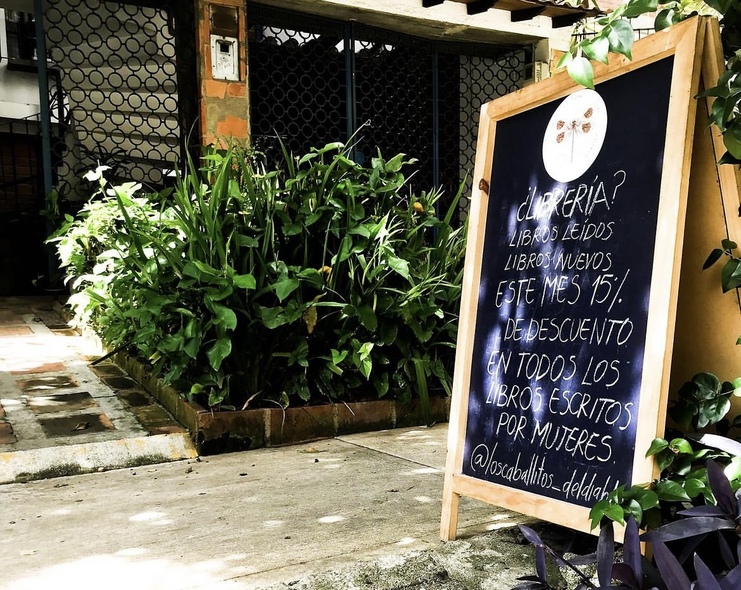 ¿LIBRERÍA?
LIBROS LEÍDOS
LIBROS NUEVOS
ESTE MES 15%
DE DESCUENTO
EN TODOS LOS
LIBROS ESCRITOS
POR MUJERES.